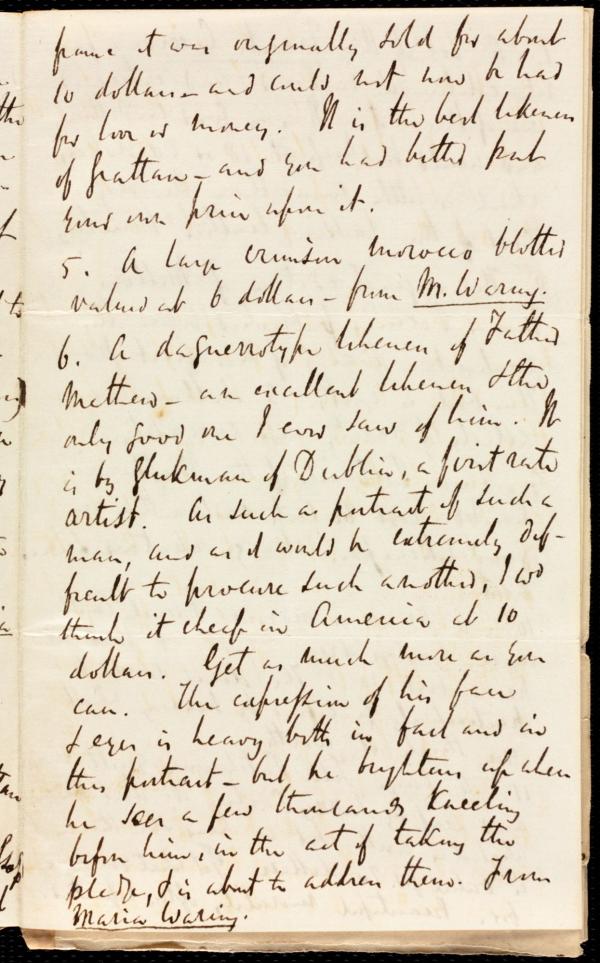 frame it was originally sold for about
10 dollars – and could not now be had
for love or money. It is the best likeness
of Grattan – and you had better put
your own price upon it.
5. A large crimson morocco blotter
valued at 6 dollars – from M. Waring.
6. A daguerrotype likeness of Father
Mathew – an excellent likeness & the
only good one I ever saw of him. It
is by Glukman of Dublin, a first rate
artist. As such a portrait of such a
man, and as it would be extremely dif-
ficult to procure such another, I wd
think it cheap in America at 10
dollars. Get as much more as you
can. The expression of his face
& eyes is heavy both in fact and in
this portrait – but he brightens up when
he sees a few thousands kneeling
before him, in the act of taking the
pledge, & is about to address them. From
Maria Waring.